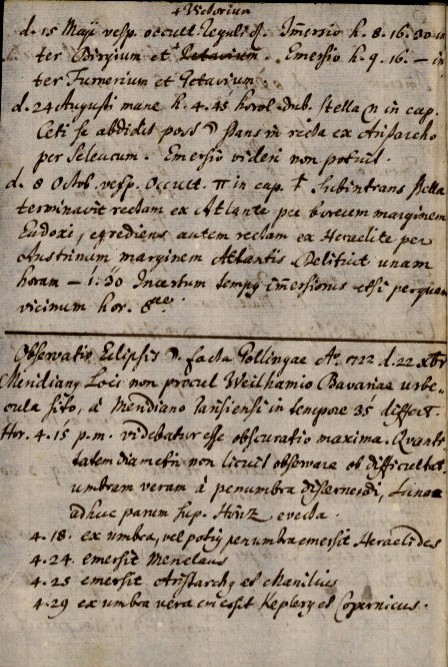 + Victorium
d. 15 Maij vesp. occult. Regulus. Imersio h. 8. 16. 30 in
ter Birgium et Petavium. Emersio h. 9. 16. — in
ter Furnerium et Petavium.
d. 24 Augusti mane h. 4. 45 horol. dub. stella in cap.
Ceti se abdidit post ☽ stans in recta ex Aristarcho
per Seleucum. Emersio videri non potuit.
d. 8 Octob. vesp. occult. π in cap. Subintrans stella
terminavit rectam ex Atlante per boreum marginem
Eudoxi, egrediens autem rectam ex Heraclite per
Austrinum marginem Atlantis. Delituit unam
horam — 1. 30 Incertum tempq imersionis etsi perquam
vicinum hor. 8ae.
Observatio Eclipsis ☽. facta Pollingae Ao. 1722 d. 22 xbr
Meridiang Loci non procul Weilhamio Bavariae urbe-
cula sito, à Meridiano Parisiensi in tempore 35 differt.
Hor. 4. 15 p. m. videbatur esse obscuratio maxima. Quanti
tatem diametri non licuit observare ob difficultat.
umbram veram à penumbra discernendi, Luna
adhuc parum sup. Horiz evecta.
4. 18. ex umbra, vel potig penumbra emersit Heraclides
4. 24. emersit Menelaus
4. 25 emersit Aristarchq et Manilius
4. 29 ex umbra vera emersit Keplerq et Copernicus.